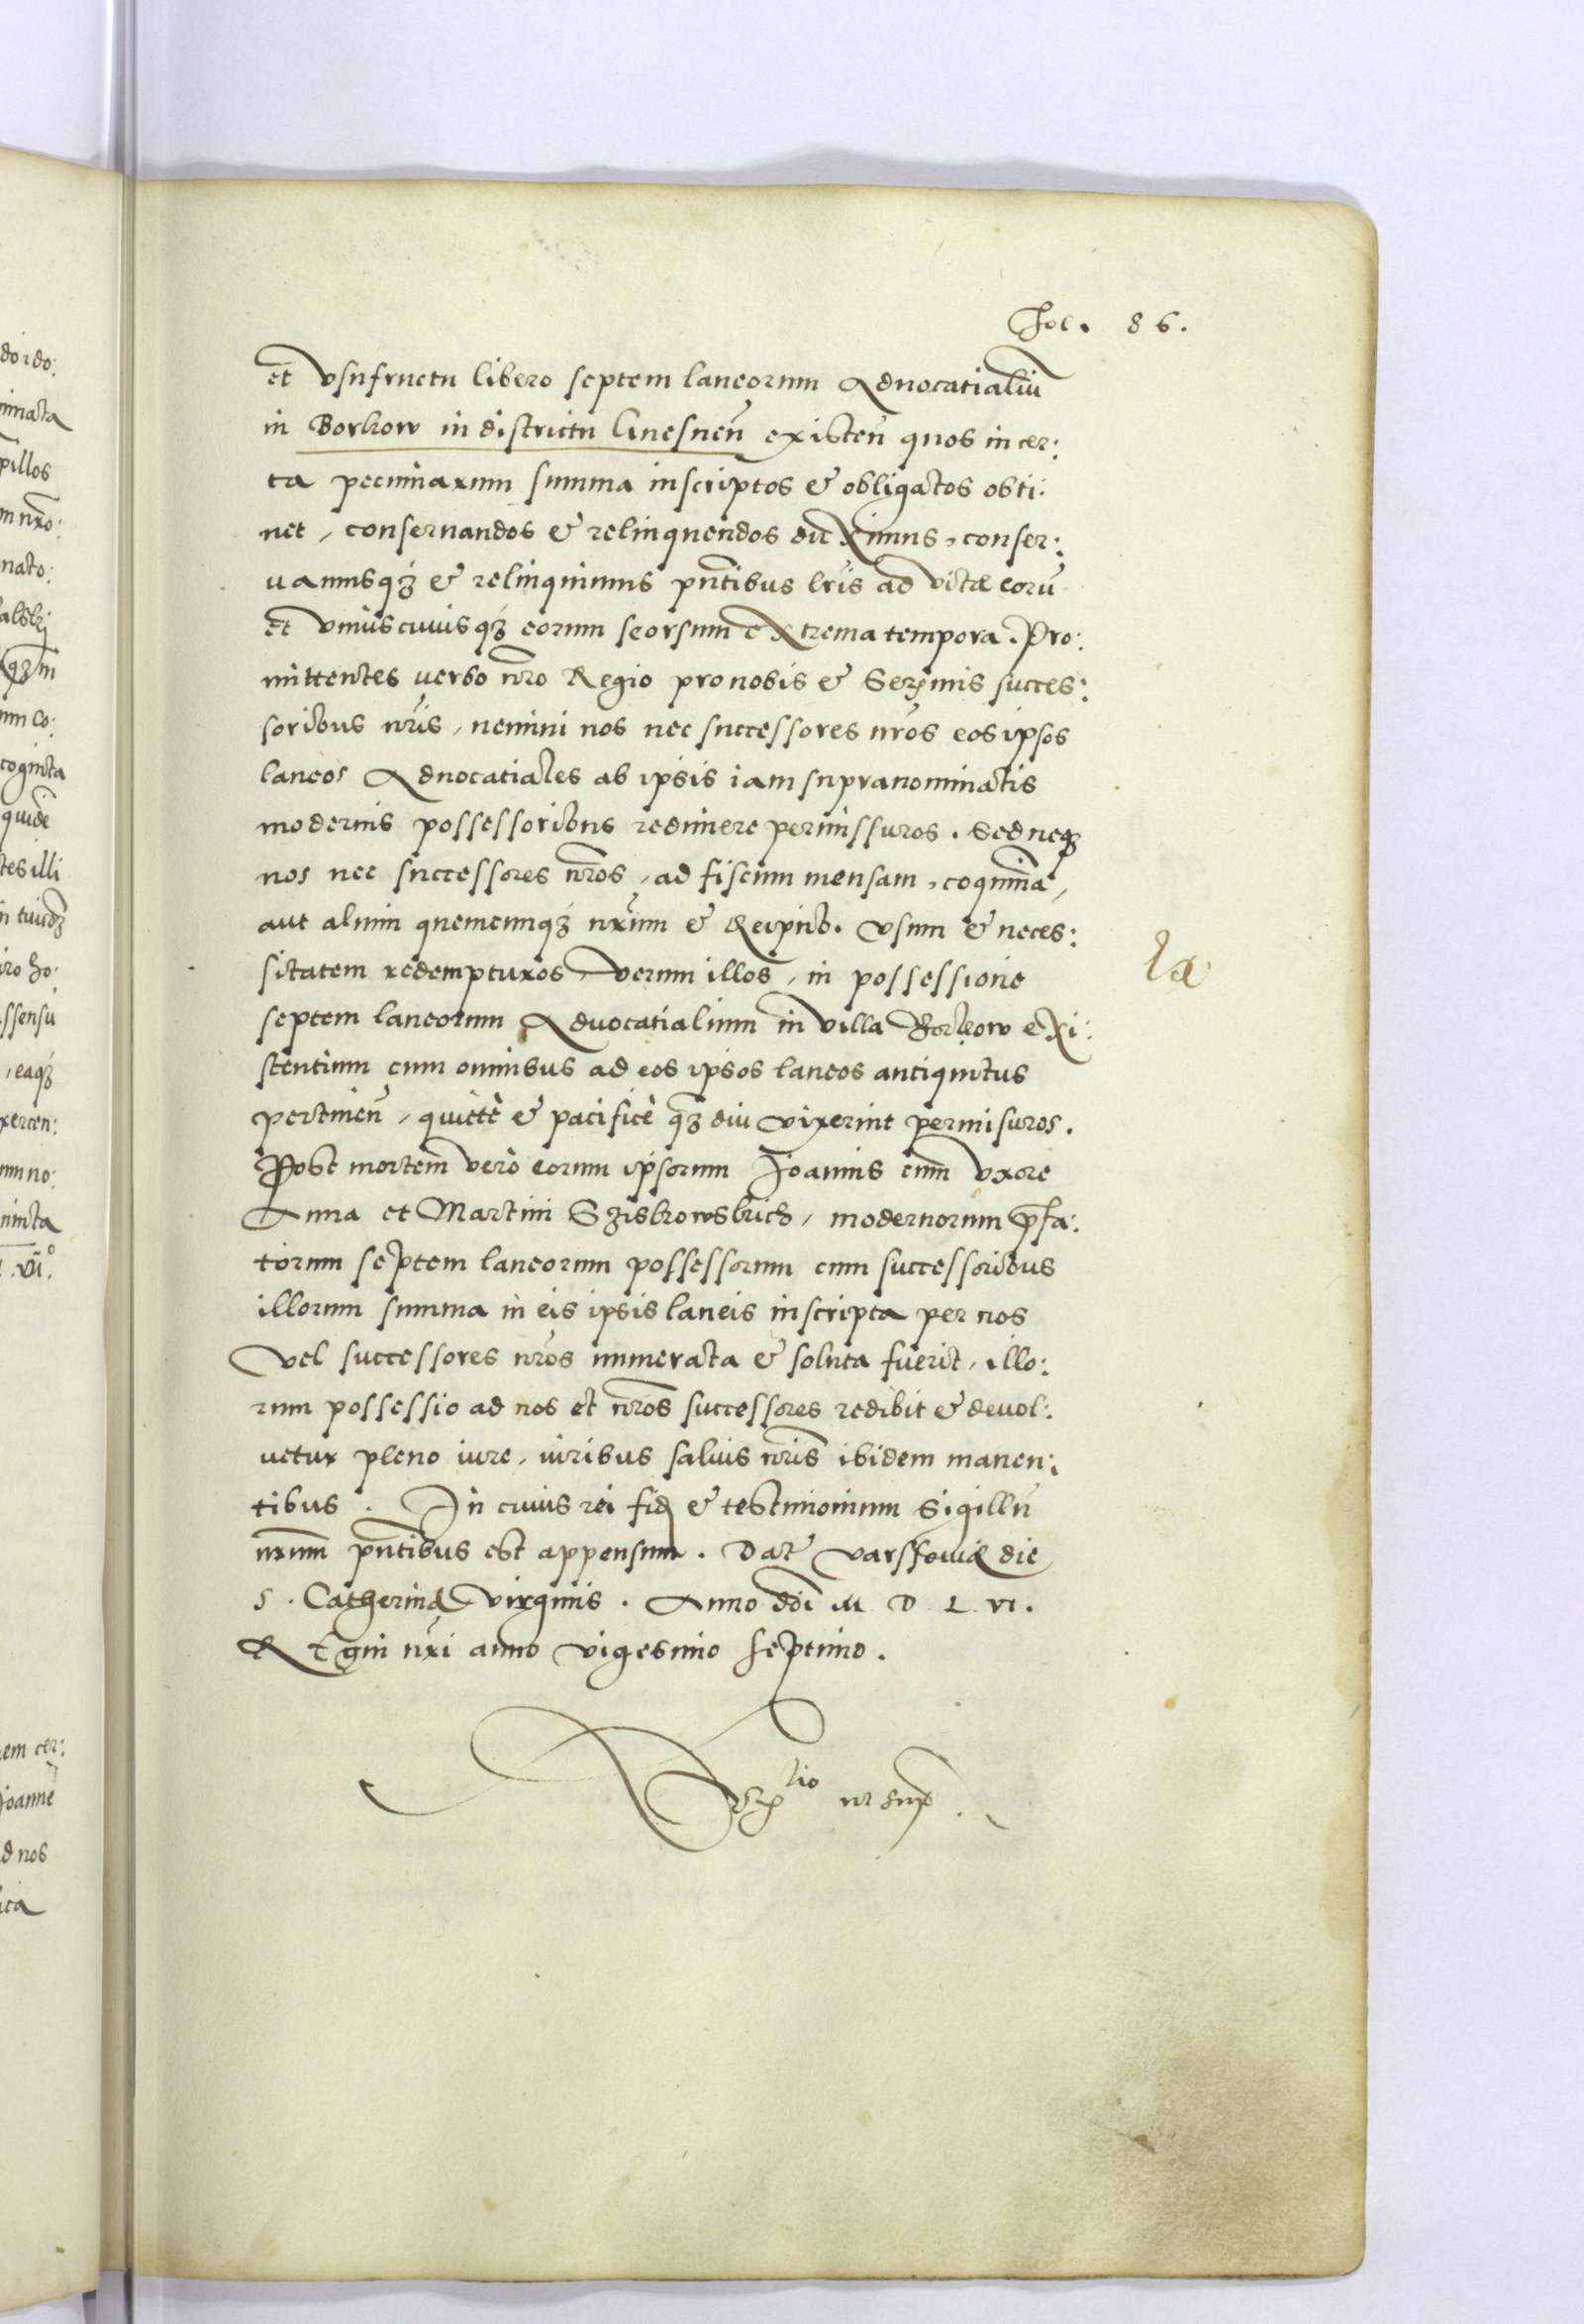 Fol. 86.
et vsufructu libero septem laneorum Aduocatialiũ
in Borkow in districtu Gnesneñ existeñ quos in cer:
ta pecuniarum summa inscriptos & obligatos obti:
net, conseruandos & relinquendos duximus, conser:
uamusqꝫ & relinquimus pñtibus lr̃is ad vitæ eorũ
et vniuscuiusqꝫ eorum seorsum extrema tempora. Pro:
mittentes verbo nr̃o Regio pro nobis & Serm̃is succes:
soribus nr̃is, nemini nos nec successores nr̃os eos ipsos
laneos Aduocatiales ab ipsis iam supranominatis
modernis possessoribus redimere permissuros. Sed neqꝫ
nos nec successores nr̃os, ad fiscum mensam, coquinã,
aut alium quemcunqꝫ nr̃um & Reipub. vsum & neces:
sitatem redempturos, verum illos, in possessione
la
septem laneorum Aduocatialium in villa Borkow exi:
stentium cum omnibus ad eos ipsos laneos antiquitus
pertineñ, quietè & pacificè qꝫ diu vixerint permisuros.
Post mortem verò eorum ipsorum Joannis cum vxore
Anna et Martini Sziskowskich, modernorum p̃fa:
torum septem laneorum possessorum cum successoribus
illorum summa in eis ipsis laneis inscripta per nos
vel successores nr̃os numerata & soluta fuerit, illo:
rum possessio ad nos et nr̃os successores redibit & deuol:
uetur pleno iure, iuribus saluis nr̃is ibidem manen:
tibus. In cuius rei fid̨ & testimonium Sigillũ
nr̃um pñtibus est appensum. Dat̃ Varssouiæ die
S. Catherinæ virginis. Anno dñi M D L VI.
Regñi nr̃i anno vigesimo septimo.
ut sup̃.